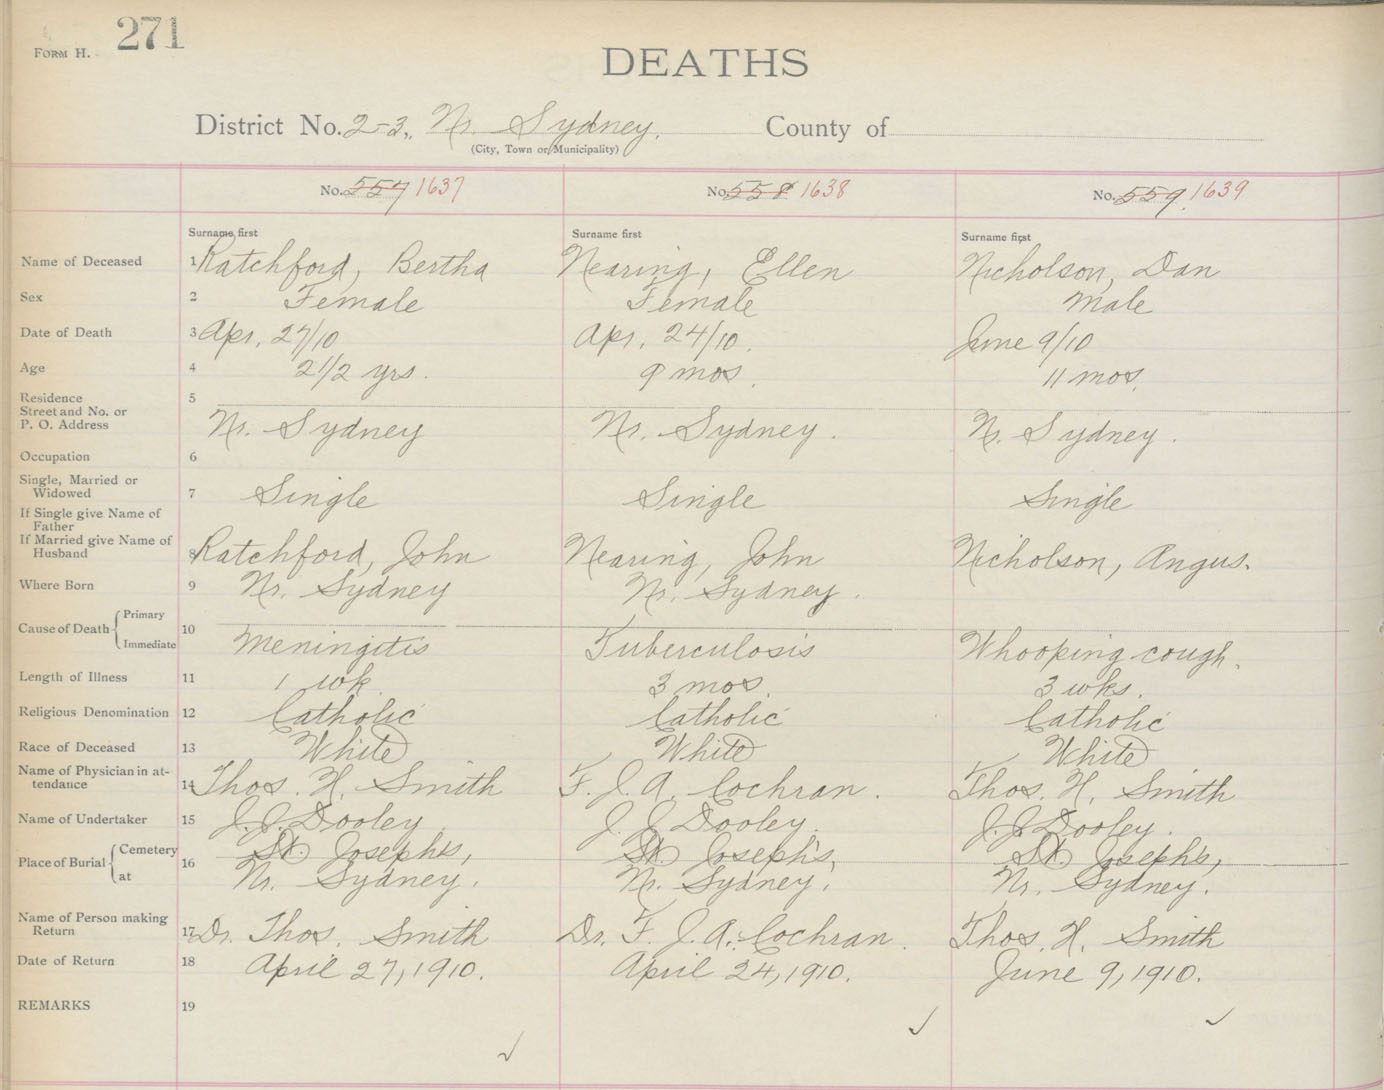 FORM H. 271
DEATHS
District No. 2-3, Nr. Sydney. County of
(City, Town or Municipality)
No. 557 1637 No. 558 1638 No. 559 1639
Surname first Surname first Surname first
Name of Deceased 1 Ratchford, Bertha Nearing, Ellen Nicholson, Dan
Sex 2 Female Female Male
Date of Death 3 Apr. 27/10 Apr. 24/10. June 9/10
Age 4 2 1/2 yrs. 9 mos. 11 mos.
Residence 5
Street and No. or
P. O. Address Nr. Sydney Nr. Sydney. N. Sydney.
Occupation 6
Single, Married or
Widowed 7 Single Single Single
If Single give Name of
Father
If Married give Name of
Husband 8 Ratchford, John Nearing, John Nicholson, Angus.
Where Born 9 Nr. Sydney Nr. Sydney.
Cause of Death Primary 10
Immediate Meningitis Tuberculosis Whooping cough.
Length of Illness 11 1 wk. 3 mos. 3 wks.
Religious Denomination 12 Catholic Catholic Catholic
Race of Deceased 13 White White White
Name of Physician in at-
tendance 14 Thos. H. Smith F. J. A. Cochran. Thos. H. Smith
Name of Undertaker 15 J. J. Dooley J. J. Dooley. J. J. Dooley.
Place of Burial Cemetery 16 St. Joseph's, St. Joseph's, St. Joseph's,
at Nr. Sydney. Nr. Sydney. Nr. Sydney.
Name of Person making
Return 17 Dr. Thos. Smith Dr. F. J. A. Cochran. Thos. H. Smith
Date of Return 18 April 27, 1910. April 24, 1910. June 9, 1910.
REMARKS 19